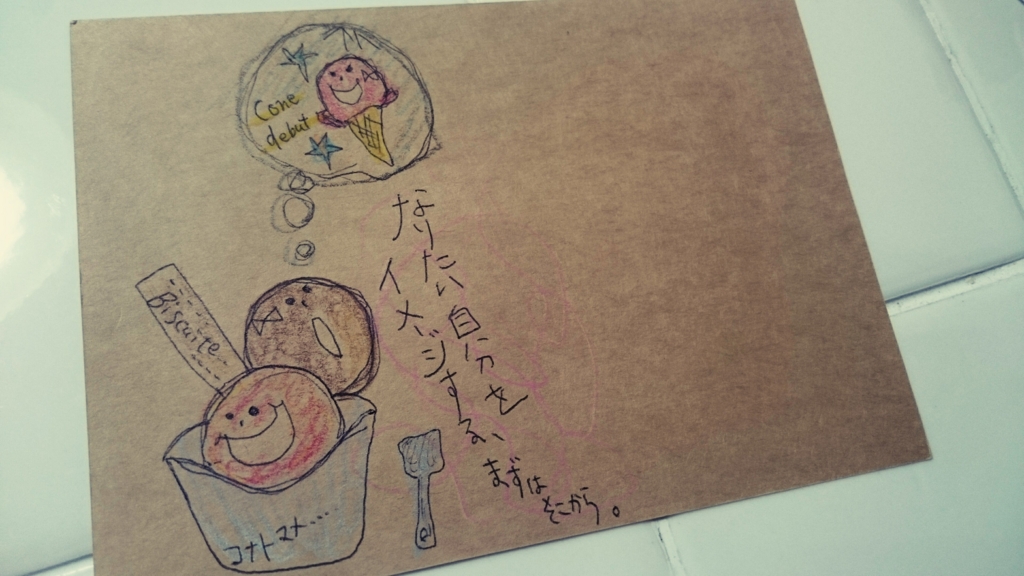 Cone
debut
なりたい自分を
イメージする、
まずは
そこから。
Biscuite